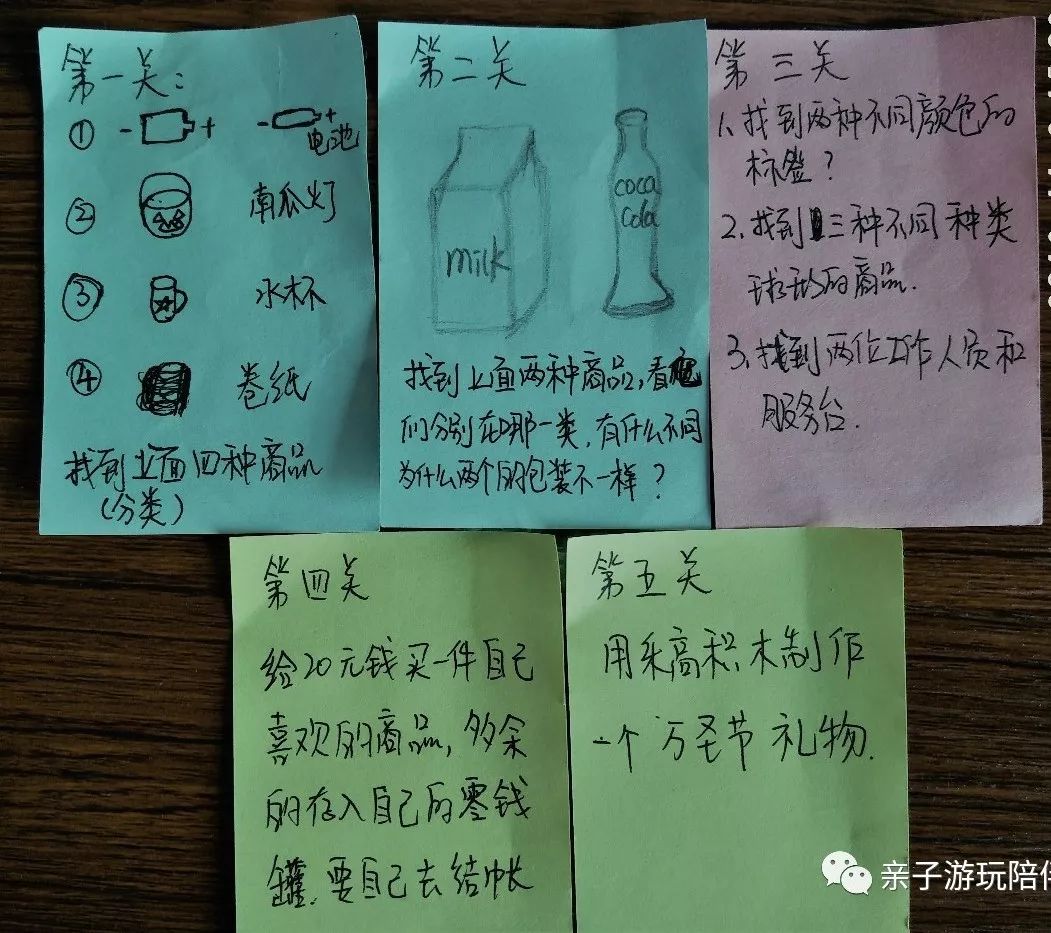 第一关:
① - +  - +
电池
② 南瓜灯
③ 水杯
④ 卷纸
找到上面四种商品
(分类)
第二关
milk
coca
Cola
找到上面两种商品,看它
们分别在哪一类,有什么不同
为什么两个的包装不一样?
第三关
1、找到两种不同颜色的
标签?
2、找到三种不同种类
球形的商品.
3、找到两位工作人员和
服务台.
第四关
给20元钱买一件自己
喜欢的商品,多余
的存入自己的零钱
罐.要自己去结帐
第五关
用乐高积木制作
一个万圣节礼物.
亲子游玩陪伴